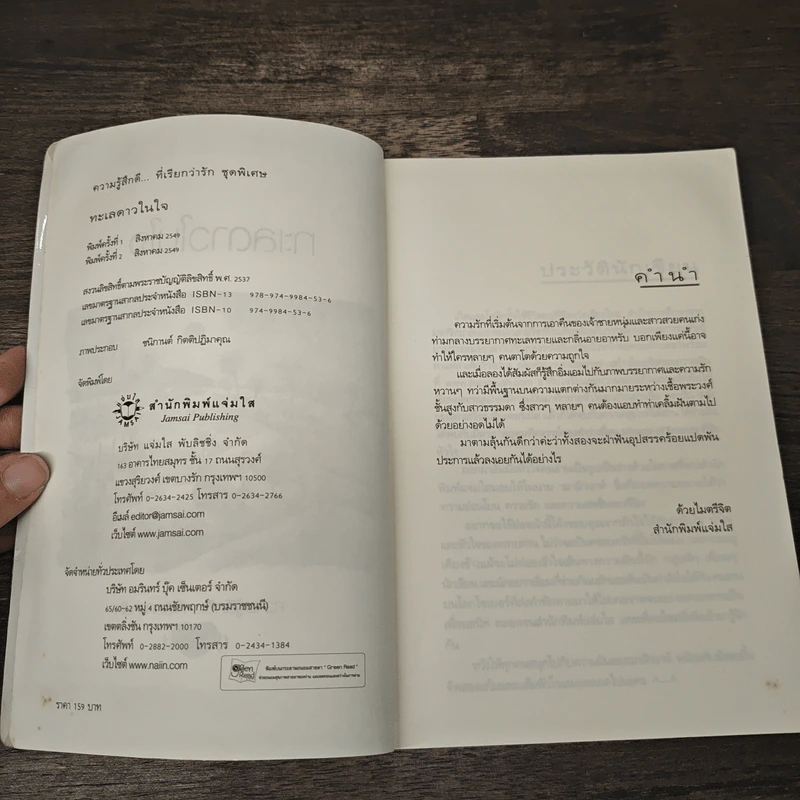 ความรู้สึกดี... ที่เรียกว่ารัก ชุดพิเศษ
ทะเลดาวในใจ
พิมพ์ครั้งที่ 1 สิงหาคม 2549
พิมพ์ครั้งที่ 2 สิงหาคม 2549
สงวนลิขสิทธิ์ตามพระราชบัญญัติลิขสิทธิ์ พ.ศ. 2537
เลขมาตรฐานสากลประจำหนังสือ ISBN-13 978-974-9984-53-6
เลขมาตรฐานสากลประจำหนังสือ ISBN-10 974-9984-53-6
ภาพประกอบ ชนิกานต์ กิตติปฏิมาคุณ
จัดพิมพ์โดย
สำนักพิมพ์แจ่มใส
Jamsai Publishing
บริษัท แจ่มใส พับลิชชิ่ง จำกัด
163 อาคารไทยสมุทร ชั้น 17 ถนนสุรวงศ์
แขวงสุริยวงศ์ เขตบางรัก กรุงเทพฯ 10500
โทรศัพท์ 0-2634-2425 โทรสาร 0-2634-2766
อีเมล์ editor@jamsai.com
เว็บไซต์ www.jamsai.com
จัดจำหน่ายทั่วประเทศโดย
บริษัท อมรินทร์ บุ๊ค เซ็นเตอร์ จำกัด
65/60-62 หมู่ 4 ถนนชัยพฤกษ์ (บรมราชชนนี)
เขตตลิ่งชัน กรุงเทพฯ 10170
โทรศัพท์ 0-2882-2000 โทรสาร 0-2434-1384
เว็บไซต์ www.naiin.com
Green Read
พิมพ์บนกระดาษถนอมสายตา "Green Read"
ราคา 159 บาท
คำนำ
ความรักที่เริ่มต้นจากการเอาคืนของเจ้าชายหนุ่มและสาวสวยคนเก่ง
ท่ามกลางบรรยากาศทะเลทรายและกลิ่นอายอาหรับ บอกเพียงแค่นี้อาจ
ทำให้ใครหลายๆ คนตาโตด้วยความถูกใจ
และเมื่อลองได้สัมผัสก็รู้สึกอิ่มเอมไปกับภาพบรรยากาศและความรัก
หวานๆ ทว่ามีพื้นฐานบนความแตกต่างกันมากมายระหว่างเชื้อพระวงศ์
ชั้นสูงกับสาวธรรมดา ซึ่งสาวๆ หลายๆ คนต้องแอบทำท่าเคลิ้มฝันตามไป
ด้วยอย่างอดไม่ได้
มาตามลุ้นกันดีกว่าค่ะว่าทั้งสองจะฝ่าฟันอุปสรรคร้อยแปดพัน
ประการแล้วลงเอยกันได้อย่างไร
ด้วยไมตรีจิต
สำนักพิมพ์แจ่มใส